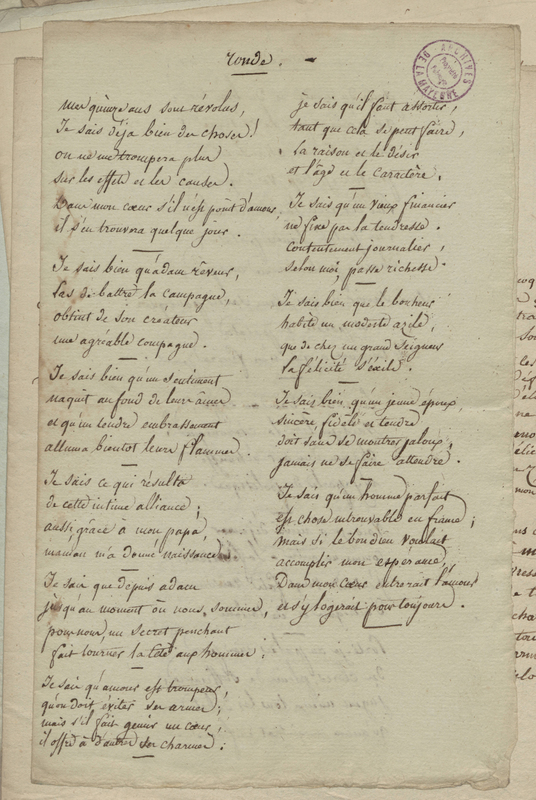 ronde.
ARCHIVES
DE LA MAYENNE
mes quinze ans sont révolus,
Je sais déja bien des choses!
on ne me trompera plus
sur les effets et les causes.
Dans mon cœur s'il n'est point d'amour,
il s'en trouvera quelque jour.
Je sais bien qu'adam rêveur,
las de battre la campagne,
obtint de son créateur
une agréable compagne.
Je sais bien qu'un sentiment
naquit au fond de leurs âmes
et qu'un tendre embrassement
alluma bientot leurs flammes.
Je sais ce qui résulta
de cette intime alliance;
aussi, grâce à mon papa,
maman m'a donné naissance.
Je sais que depuis adam
jusqu'au moment ou nous sommes,
pour nous un secret penchant
fait tourner la tête aux hommes:
Je sais qu'amour est trompeur,
qu'on doit éviter ses armes;
mais s'il fait gémir un cœur,
il offre à d'autres ses charmes:
je sais qu'il faut assortir,
tant que cela se peut faire,
la raison et le désir
et l'âge et le caractère.
Je sais qu'un vieux financier
ne fixe pas la tendresse.
contentement journalier,
selon moi, passe richesse.
Je sais bien que le bonheur
habite un modeste azile,
que de chez un grand Seigneur
la félicité s'exile.
Je sais bien qu'un jeune époux,
sincère, fidèle et tendre
doit sans se montrer jaloux,
jamais ne se faire attendre.
Je sais qu'un homme parfait
est chose introuvable en france;
mais si le bon dieu voulait
accomplir mon espérance,
Dans mon cœur entrerait l'amour
et s'y logerait pour toujours.